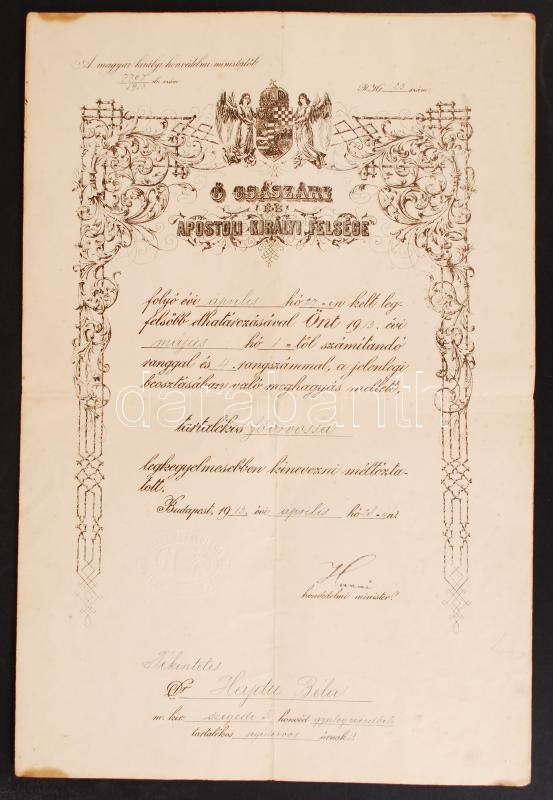 A magyar királyi honvédelmi ministertől.
7707 eln. szám
1913
R. H. 23 szám
Ő CSÁSZÁRI
ÉS
APOSTOLI KIRÁLYI FELSÉGE
folyó évi április hó 27-én kelt leg-
felsőbb elhatározásával Önt 1913. évi
május hó 1-től számítandó
ranggal és 4. rangszámmal, a jelenlegi
beosztásában való meghagyás mellett,
darabanth.com
tartalékos főorvossá
legkegyelmesebben kinevezni méltózta-
tott.
Budapest, 1913. évi április hó 28-án.
honvédelmi minister.
Tekintetes
Dr Hajdu Béla
m. kir. szegedi 5. honvéd gyalogezredbeli
tartalékos segédorvos úrnak.